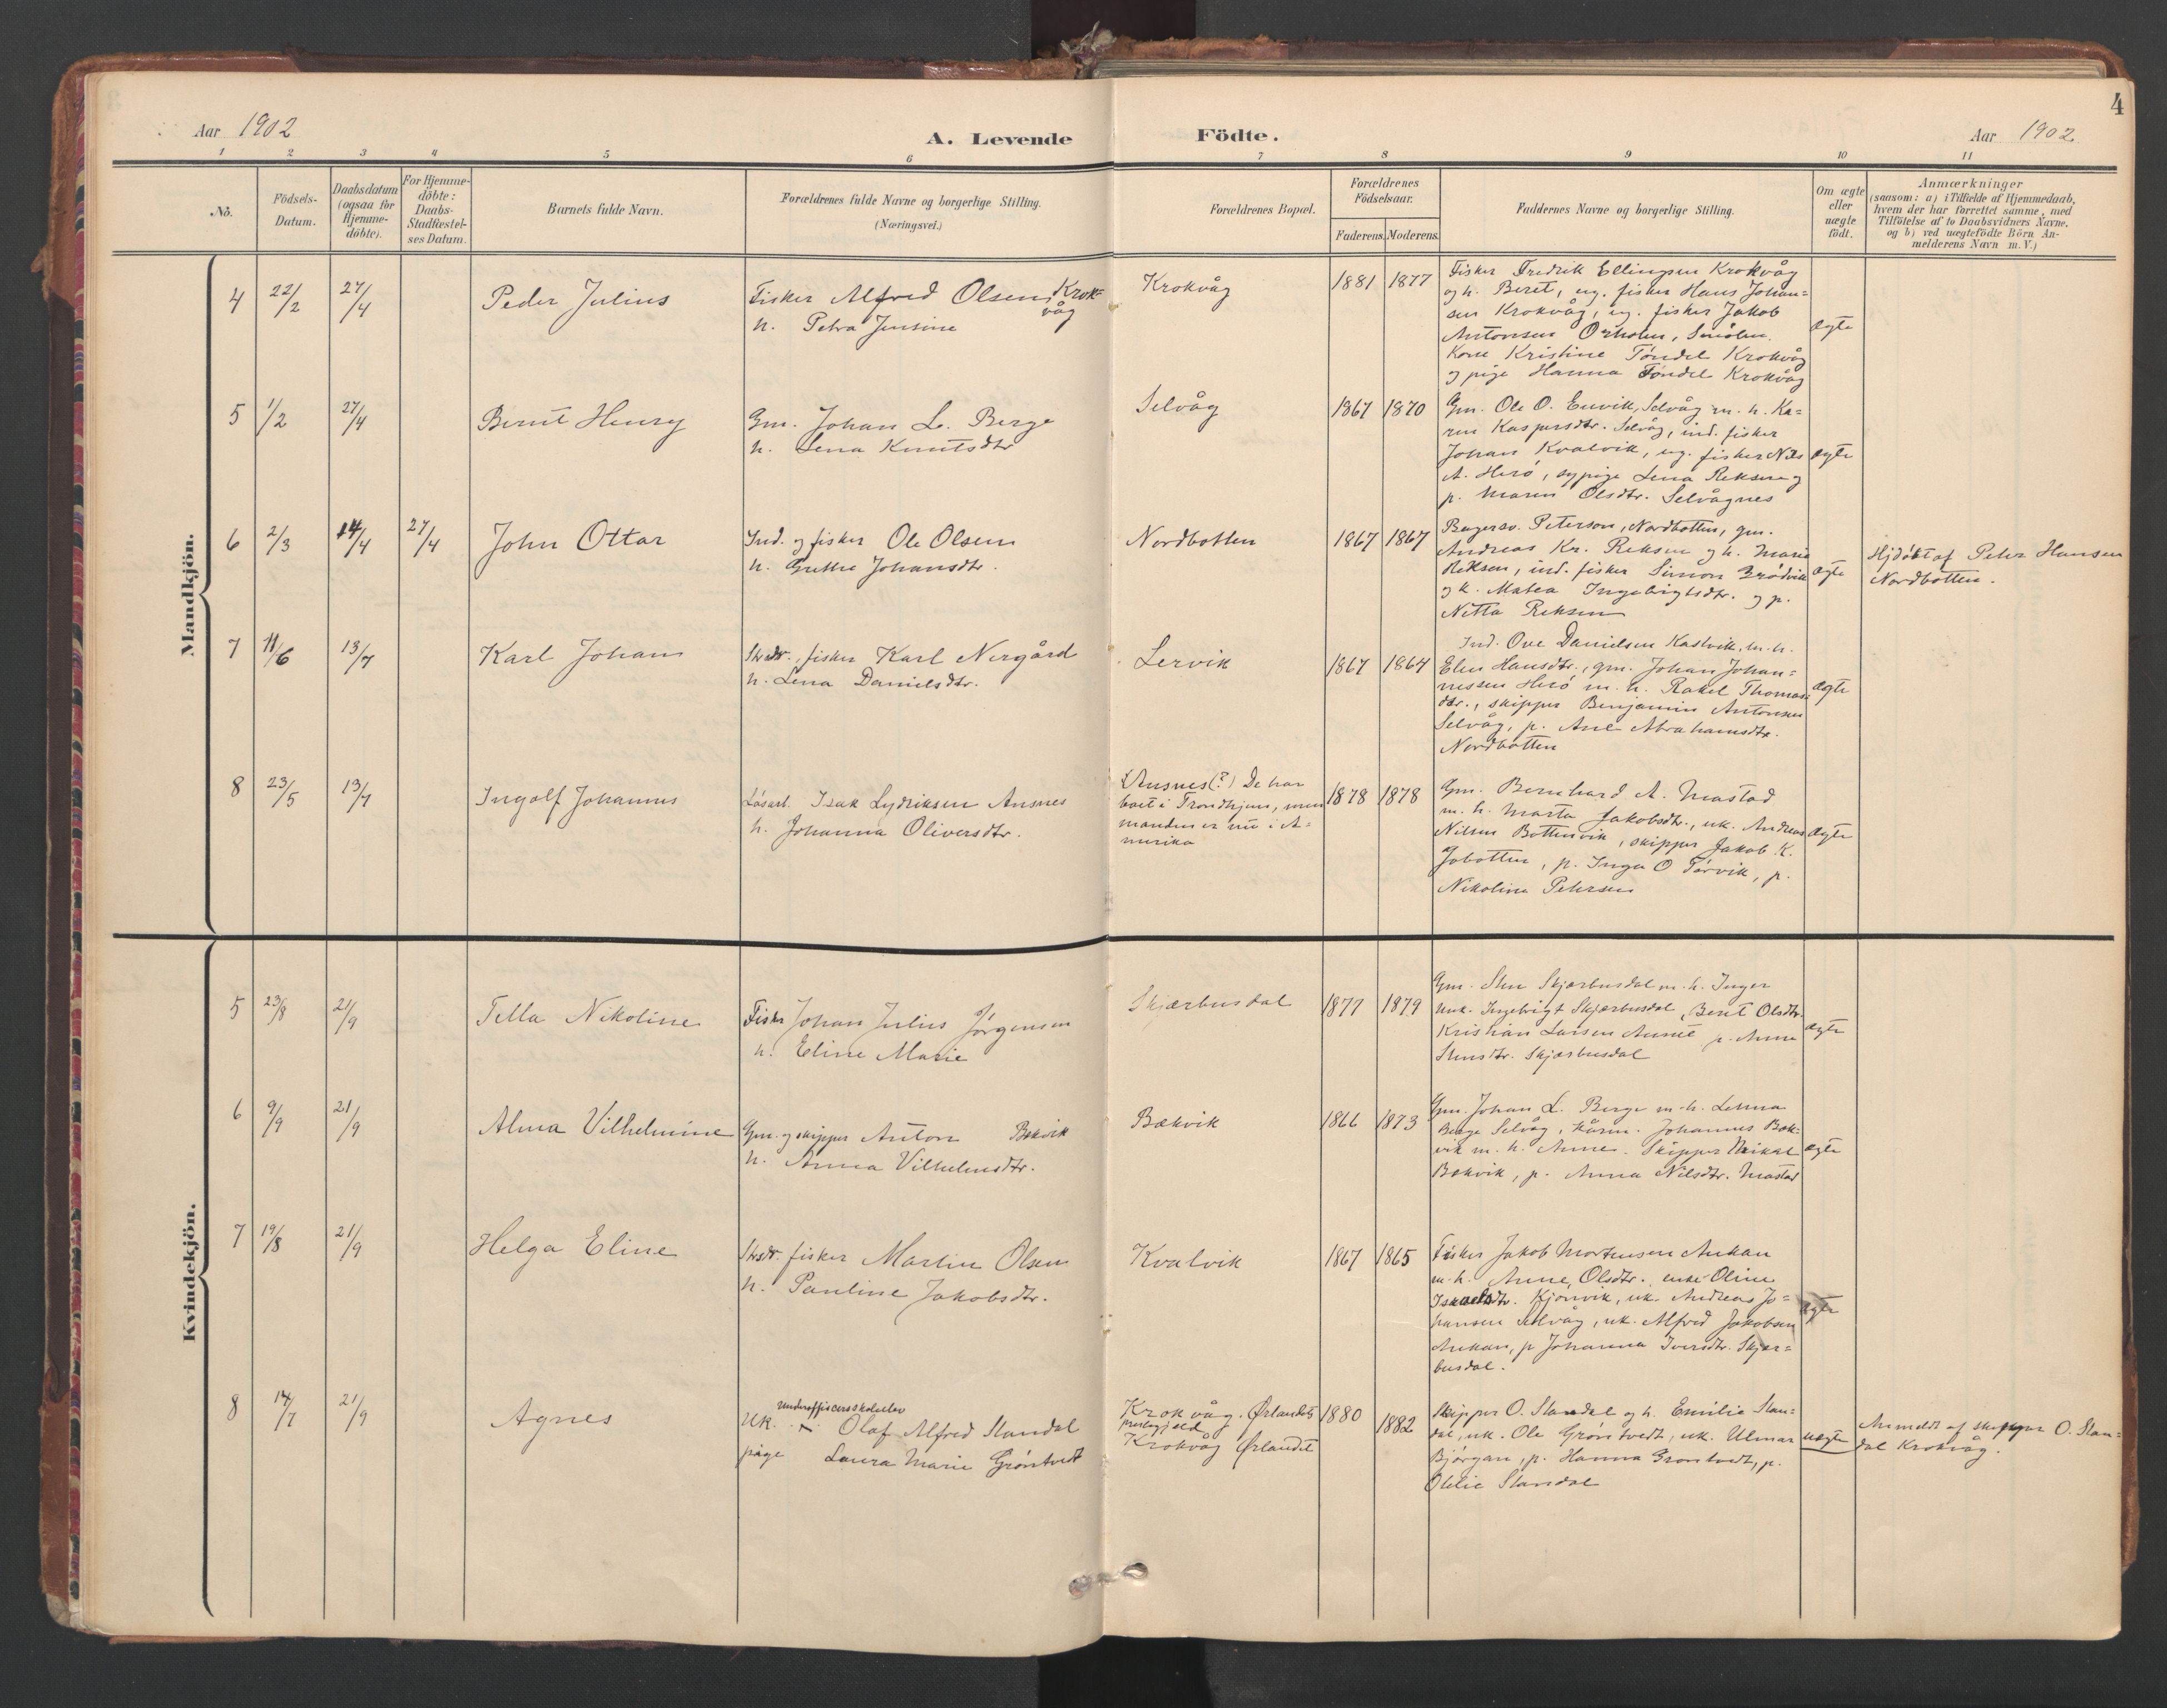 4
Aar 1902
A. Levende Födte.
Aar 1902
1 2 3 4 5 6 7 8 9 10 11
No.
Födsels-
Datum.
Daabsdatum
(ogsaa for
Hjemme-
döbte).
For Hjemme-
döbte:
Daabs-
Stadfæstel-
ses Datum.
Barnets fulde Navn.
Forældrenes fulde Navne og borgerlige Stilling.
(Næringsvei.)
Forældrenes Bopæl.
Forældrenes
Födselsaar.
Faderens. Moderens.
Faddernes Navne og borgerlige Stilling.
Om ægte
eller
uægte
födt.
Anmærkninger
(saasom: a) i Tilfælde af Hjemmedaab,
hvem der har forrettet samme, med
Tilföielse af to Daabsvidners Navne,
og b) ved uægtefödte Börn An-
melderens Navn m. V.)
Mandkjön.
4 22/2 27/4
Peder Julius
Fisker Alfred Olsen, Krok-
våg
h. Petra Jensine
Krokvåg
1881 1877
Fisker Fredrik Ellingsen Krokvåg
og h. Beret, ug. fisker Hans Johan=
sen Krokvåg, ug. fisker Jakob
Antonsen Smölen.
Kone Kristine Töndel Krokvåg
og pige Hanna Töndel Krokvåg
ægte
5 1/2 27/4
Bernt Henry
Gm. Johan L. Berge
h. Lena Knutsdtr
Selvåg
1867 1870
Gm. Ole O. Selvåg m. h. Ka=
ren Kaspersdtr. Selvåg, ind. fisker
Johan Kvalvik, ug. fisker Nils
A. Herö, sypige Lena Reksen og
p. Maren Olsdtr. Selvågnes
ægte
6 2/3 14/4 27/4
John Ottar
Ind. og fisker Ole Olsen
h. Grethe Johansdtr.
Nordbotten
1867 1867
Bagersv. Peterson, Nordbotten, gm.
Andreas Kr. Reksen og h. Marie
Reksen, ind. fisker Simon
og h. Matea Ingebrigtsdtr. og p.
Netta Reksen
ægte
Hjdöbt af Peter Hansen
Nordbotten.
7 11/6 13/7
Karl Johan
fisker Karl Nergård
h. Lena Danielsdtr.
Lervik
1867 1864
Ind. Ove Danielsen Kastvik, m. h.
Elen Hansdtr., gm. Johan Johan=
nessen Herö m. h. Rakel Thomas
dtr., skipper Benjamin Antonsen
Selvåg, p. Ane Abrahamsdtr.
Nordbotten
ægte
8 23/5 13/7
Ingolf Johannes
Lösarb. Isak Lydriksen Ansnes
h. Johanna Oliversdtr.
Ansnes (?) De har
boet i Trondhjem, men
manden er nu i A=
merika
1878 1878
Gm. Bernhard A. Mastad
m. h. Marta Jakobsdtr., uk. Andreas
Nilsen Bottenvik, skipper Jakob K.
Jobotten, p. Inga O p.
Nikoline Petersen
ægte
Kvindekjön.
5 23/8 21/9
Tella Nikoline
Fisker Johan Julius Jörgensen
h. Eline Marie
Skjærbusdal
1877 1879
Gm. Sten Skjærbusdal m. h. Inger
Ingebrigt Skjærbusdal, Berit Olsdtr.
Kristian Larsen p. Anna
Stensdtr. Skjærbusdal
ægte
6 9/9 21/9
Alma Vilhelmine
Gm. og skipper Anton Bekvik
h. Anna Vilhelmsdtr.
Bækvik
1866 1873
Gm. Johan L. Berge m. h. Lenna
Berge Selvåg, Johannes Bek=
vik m. h. Anne. Skipper Mikal
Bekvik, p. Anna Nilsdtr. Mastad
ægte
7 19/8 21/9
Helga Eline
fisker Martin Olsen
h. Pauline Jakobsdtr.
Kvalvik
1867 1865
Fisker Jakob Mortensen Aukan
m. h. Anne Olsdtr. enke Oline
Israelsdtr. Kjönvik, uk. Andreas Jo=
hansen Selvåg, uk. Alfred Jakobsen
Aukan, p Johanna Iversdtr. Skjær=
busdal.
ægte
8 14/7 21/9
Agnes
underofficersskoleelev
Uk. Olaf Alfred Standal
pige Laura Marie Gröntvedt
Krokvåg. Ørlandets
prestegjeld
Krokvåg Ørlandet
1880 1882
Skipper O. Standal og h. Emilie Stan=
dal, uk. Ole Gröntvedt, uk. Ulmar
Björgan, p. Hanna Gröntvedt, p.
Otelie Standal
uægte
Anmeldt af skipper O. Stan=
dal Krokvåg.